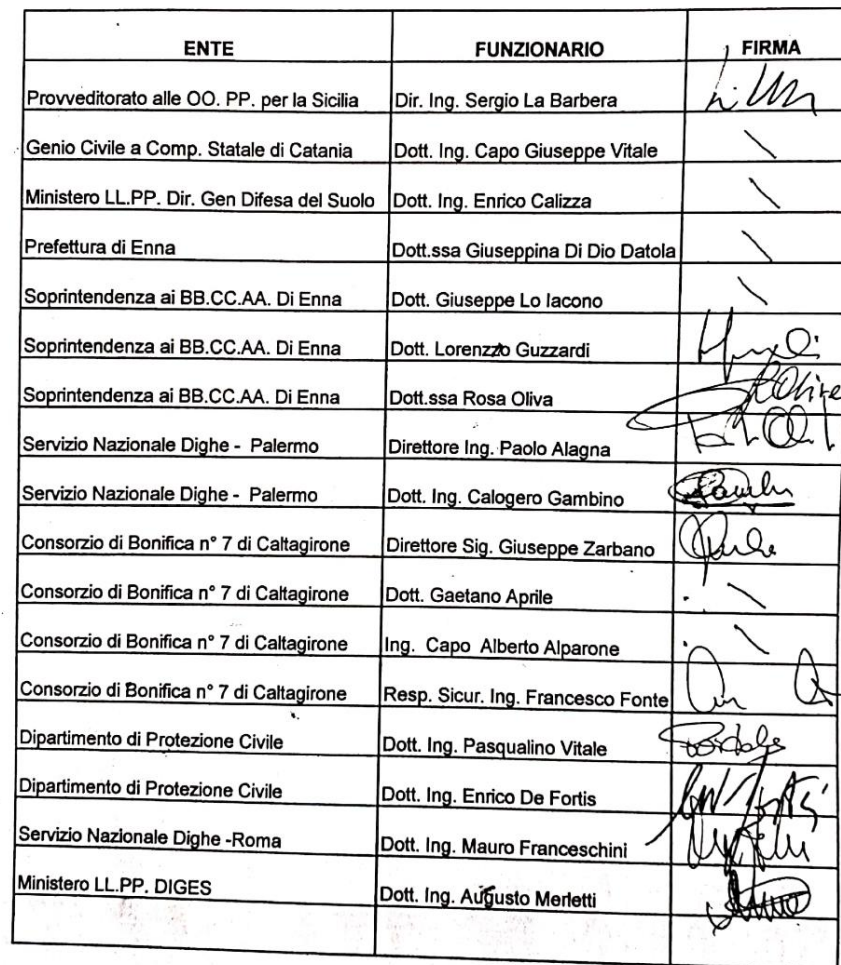 ENTE FUNZIONARIO FIRMA
Provveditorato alle OO. PP. per la Sicilia Dir. Ing. Sergio La Barbera
Genio Civile a Comp. Statale di Catania Dott. Ing. Capo Giuseppe Vitale
Ministero LL.PP. Dir. Gen Difesa del Suolo Dott. Ing. Enrico Calizza
Prefettura di Enna Dott.ssa Giuseppina Di Dio Datola
Soprintendenza ai BB.CC.AA. Di Enna Dott. Giuseppe Lo Iacono
Soprintendenza ai BB.CC.AA. Di Enna Dott. Lorenzzo Guzzardi
Soprintendenza ai BB.CC.AA. Di Enna Dott.ssa Rosa Oliva
Servizio Nazionale Dighe - Palermo Direttore Ing. Paolo Alagna
Servizio Nazionale Dighe - Palermo Dott. Ing. Calogero Gambino
Consorzio di Bonifica n° 7 di Caltagirone Direttore Sig. Giuseppe Zarbano
Consorzio di Bonifica n° 7 di Caltagirone Dott. Gaetano Aprile
Consorzio di Bonifica n° 7 di Caltagirone Ing. Capo Alberto Alparone
Consorzio di Bonifica n° 7 di Caltagirone Resp. Sicur. Ing. Francesco Fonte
Dipartimento di Protezione Civile Dott. Ing. Pasqualino Vitale
Dipartimento di Protezione Civile Dott. Ing. Enrico De Fortis
Servizio Nazionale Dighe -Roma Dott. Ing. Mauro Franceschini
Ministero LL.PP. DIGES Dott. Ing. Augusto Merletti